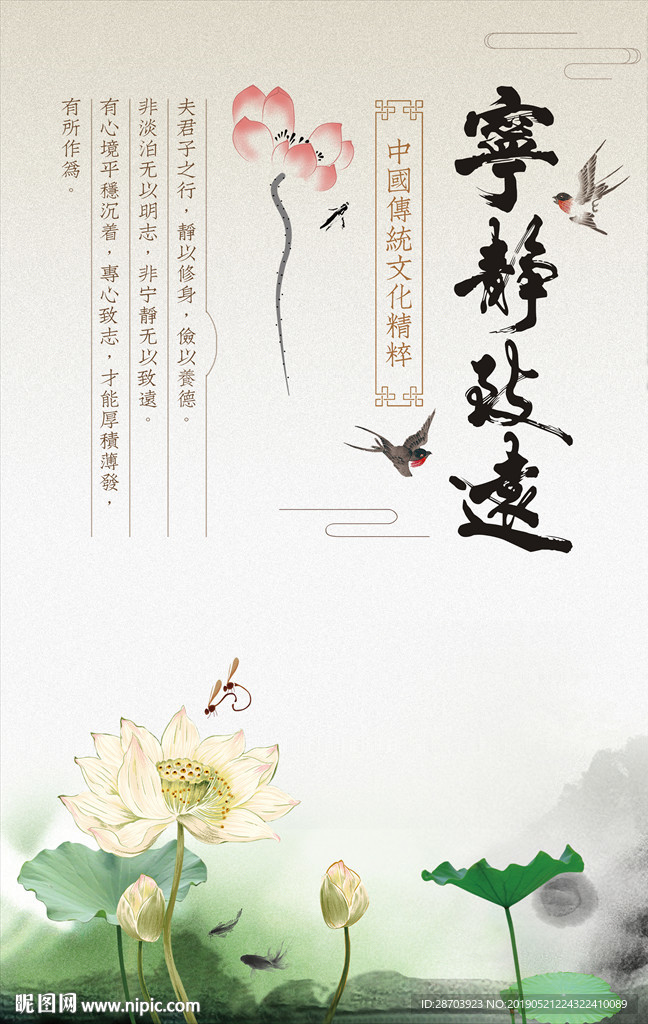 寧靜致遠
中國傳統文化精粹
夫君子之行，靜以修身，儉以養德。
非淡泊无以明志，非宁靜无以致遠。
有心境平穩沉着，專心致志，才能厚積薄發，
有所作為。
昵图网 www.nipic.com
ID:28703923 NO:20190521224322410089